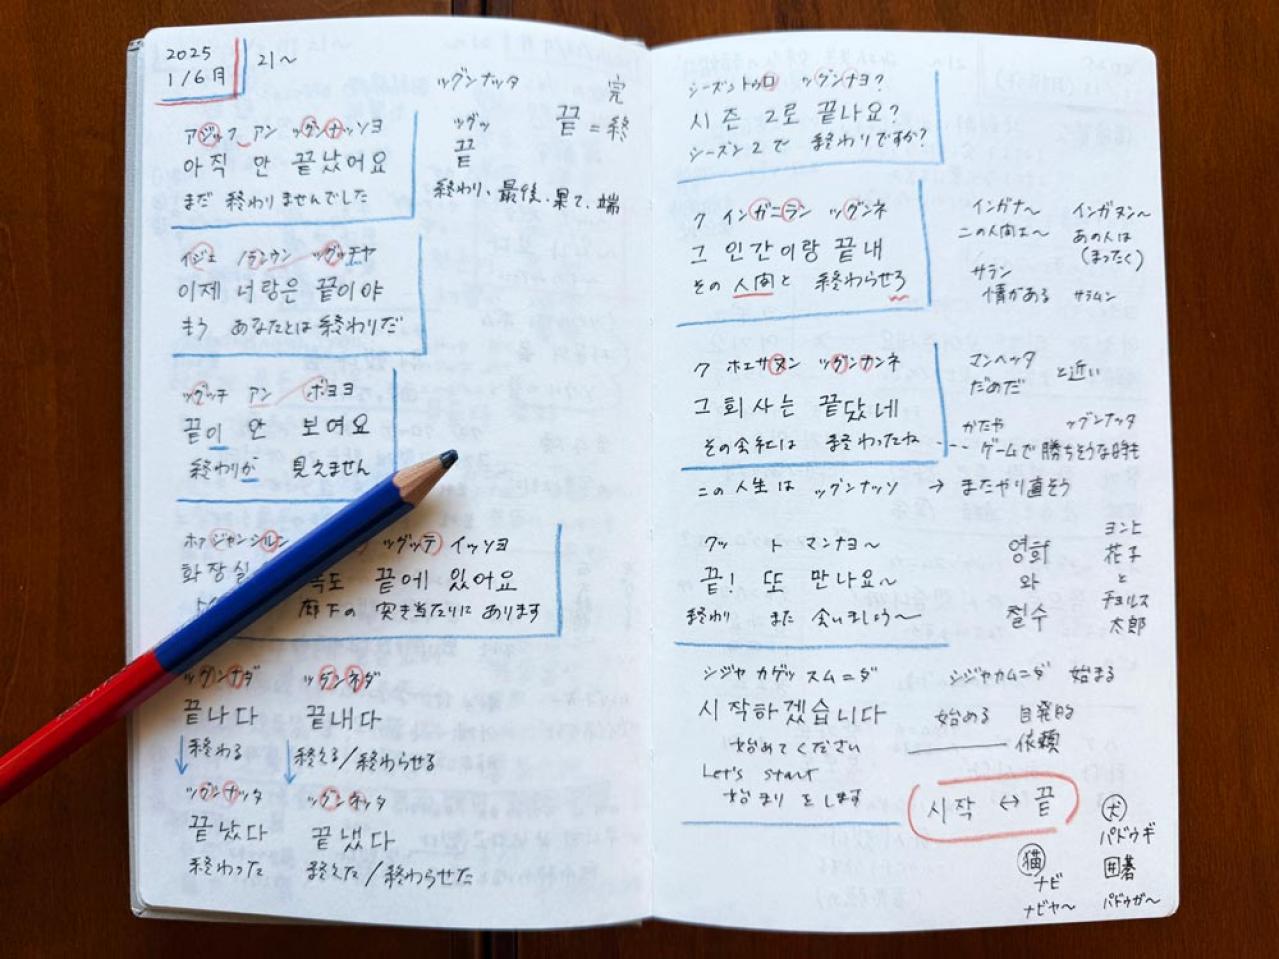 2025
1/6月
21〜
ツグンナッタ
ツグッ
끝
끝 = 終
完
終わり、最後、果て、端
アジッフ アン ッグンナッソヨ
아직 안 끝났어요
まだ 終わりませんでした
イジェ ノランウン ッグッチヤ
이제 너랑은 끝이야
もう あなたとは終わりだ
ッグッチ アン ボヨヨ
끝이 안 보여요
終わりが 見えません
ホァジャンシルン
ッグッテ イッソヨ
화장실
끝에 있어요
廊下の 突き当たりに あります
ッグンナダ
끝나다
終わる
ッグンナッタ
끝났다
終わった
ッグンネダ
끝내다
終える/終わらせる
ッグンネッタ
끝냈다
終えた/終わらせた
シーズントゥロ ッグンナヨ?
시즌 2로 끝나요?
シーズン2で 終わりですか?
ク インガニラン ッグンネ
그 인간이랑 끝내
その 人間と 終わらせろ
インガナ〜
この人間よ〜
インガヌン〜
あの人は
(まったく)
サラン
情がある
サラムン
ク ホェサヌン ッグンナンネ
그 회사는 끝났네
その会社は 終わったね
マンヘッタ
だめだ
と近い
かたや ッグンナッタ
ゲームで勝ちそうな時も
この人生は ッグンナッソ → またやり直そう
クッ ト マンナヨ〜
끝! 또 만나요〜
終わり また 会いましょう〜
영희
와
철수
ヨンヒ
花子
と
チョルス
太郎
シジャカゲッスムニダ
시작하겠습니다
始めてください
Let's start
始まりをします
シジャカムニダ 始まる
始める 自発的
依頼
시작 ↔ 끝
猫
ナビ
ナビヤ〜
犬
パドウギ
囲碁
パドウガ〜